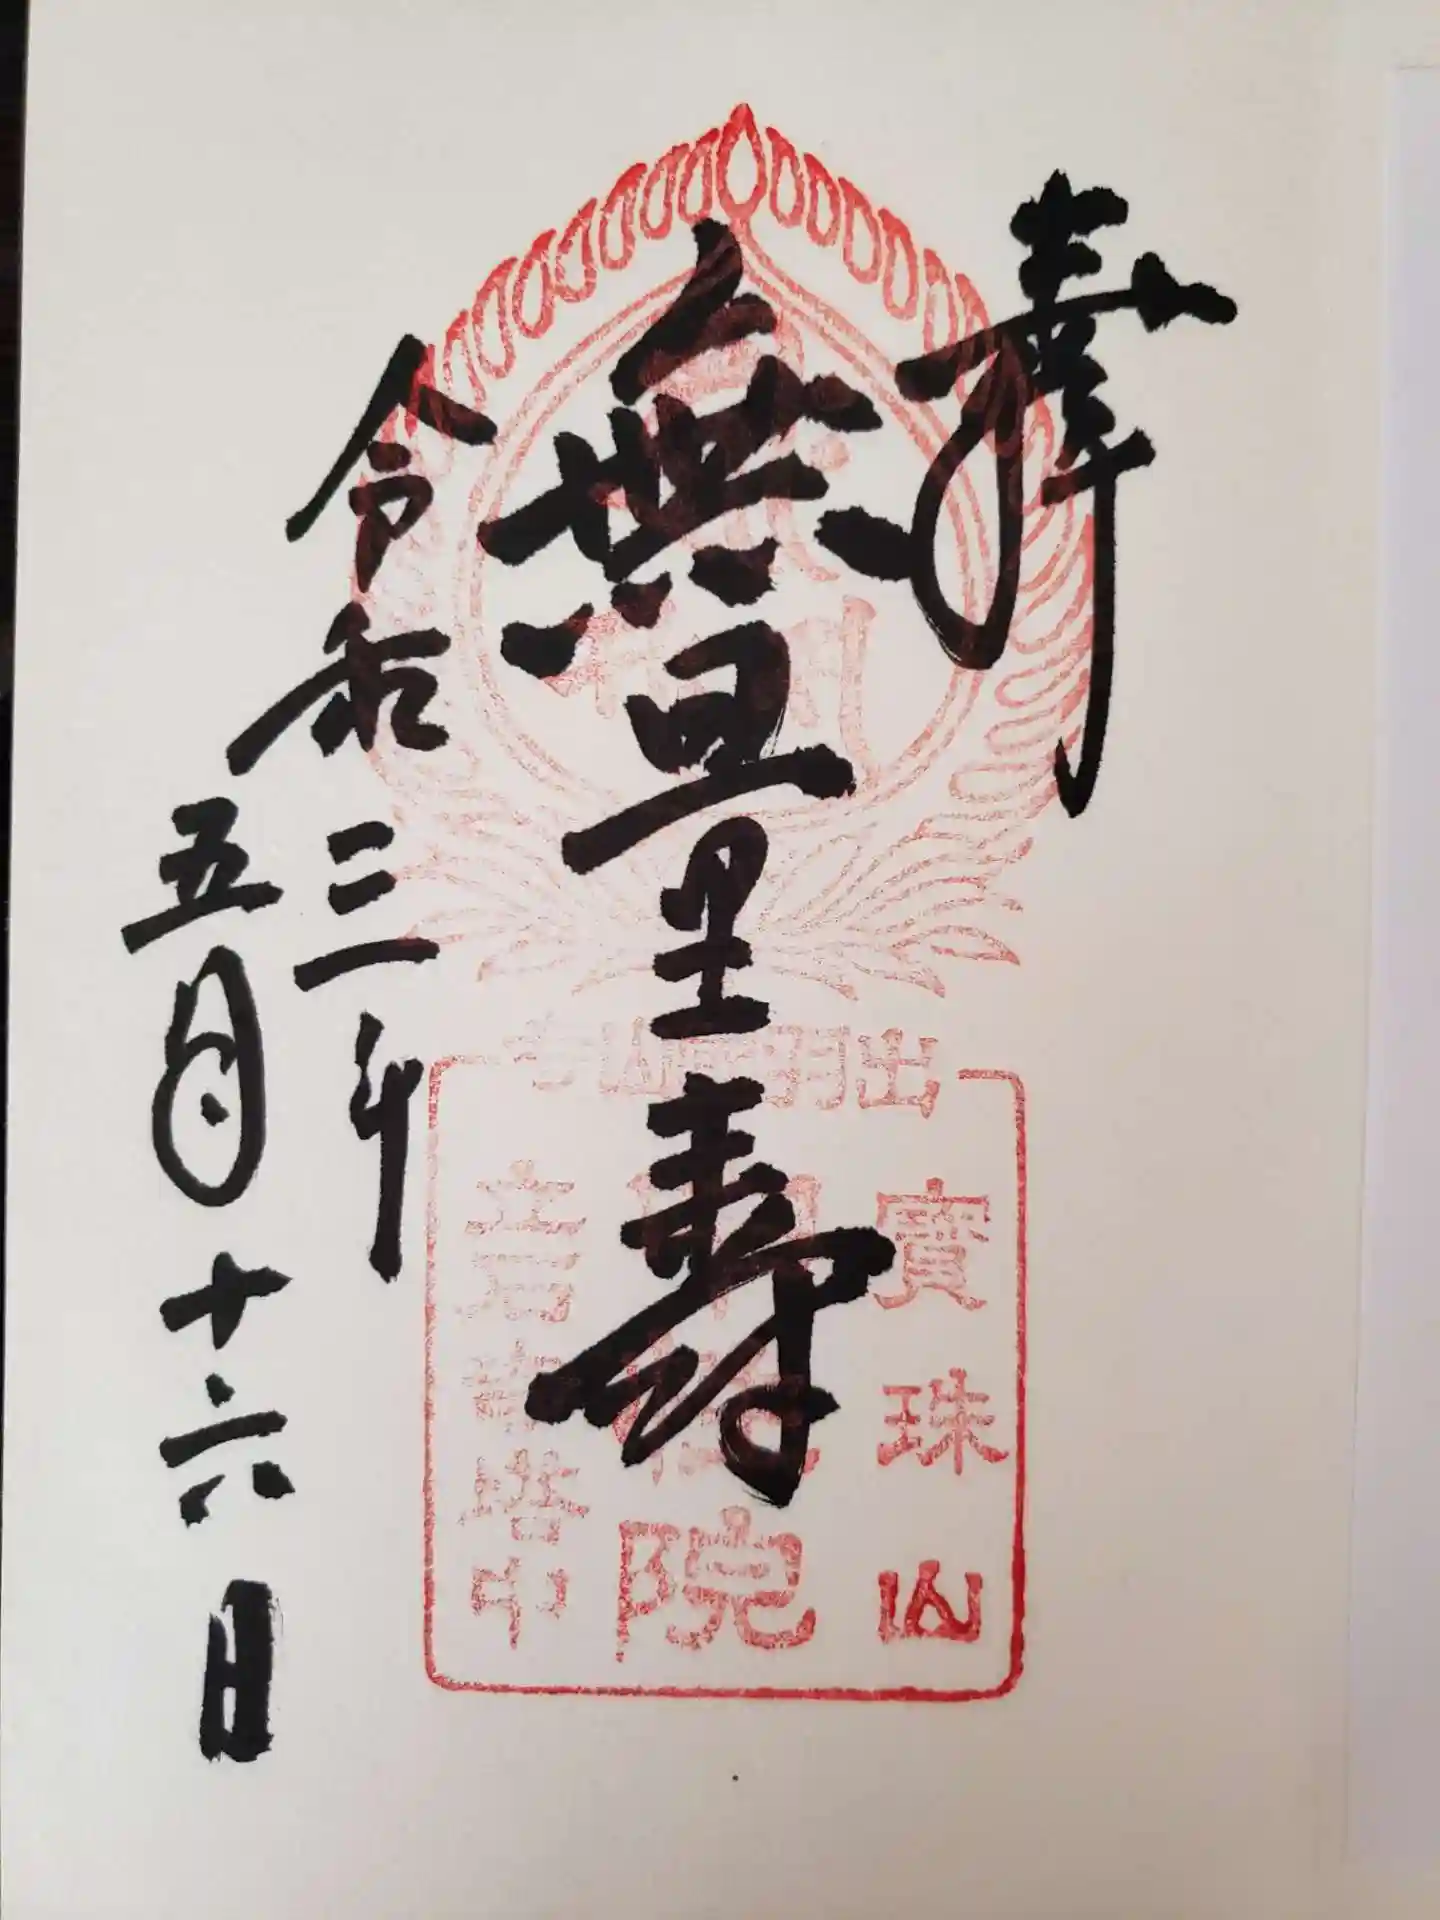 奉拝
無量壽
令和三年
五月十六日
出羽國山寺
寶珠山
院
立石寺塔中